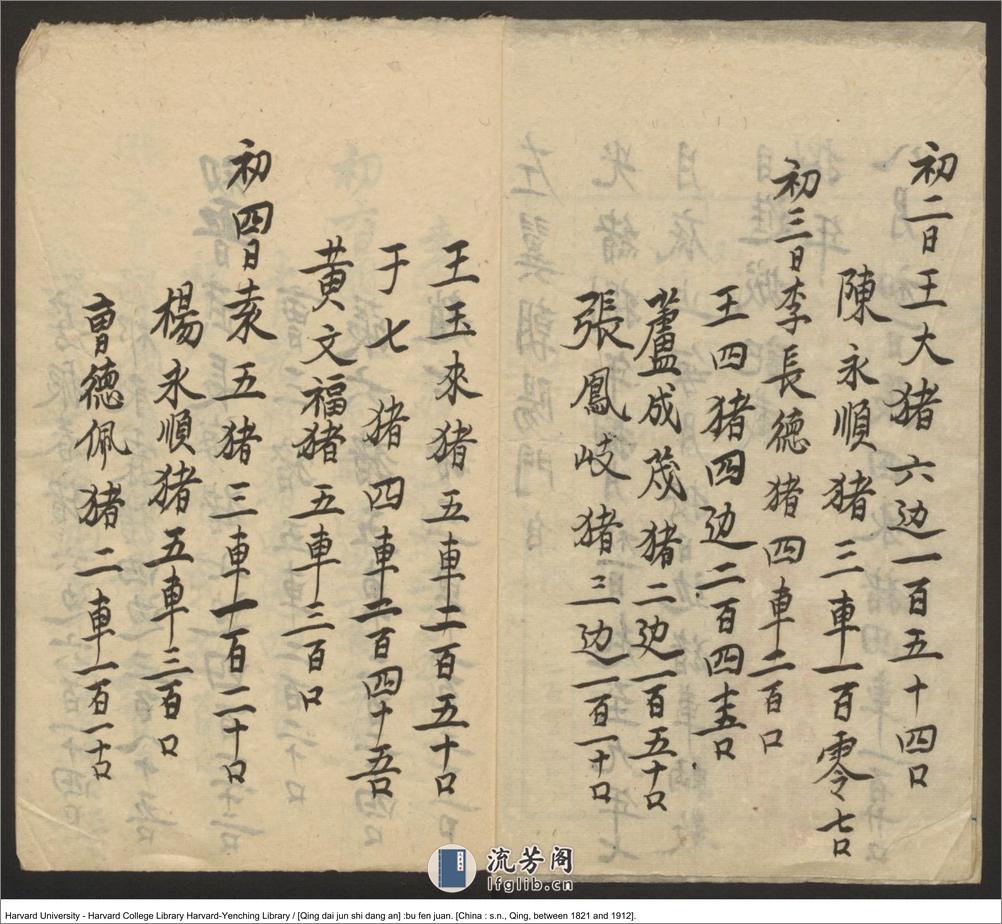 初二日王大猪六边一百五十四口
陳永順猪三車一百零七口
初三日李長德猪四車二百口
王四猪四边二百四十五口
蘆成茂猪二边一百五十口
張鳳岐猪三边一百一十口
王玉來猪五車二百五十口
于七猪四車二百四十五口
黃文福猪五車三百口
初四日袁五猪三車一百二十口
楊永順猪五車三百口
曹德佩猪二車一百一十口
流芳阁
lfglib.cn
Harvard University - Harvard College Library Harvard-Yenching Library / [Qing dai jun shi dang an] :bu fen juan. [China : s.n., Qing, between 1821 and 1912].